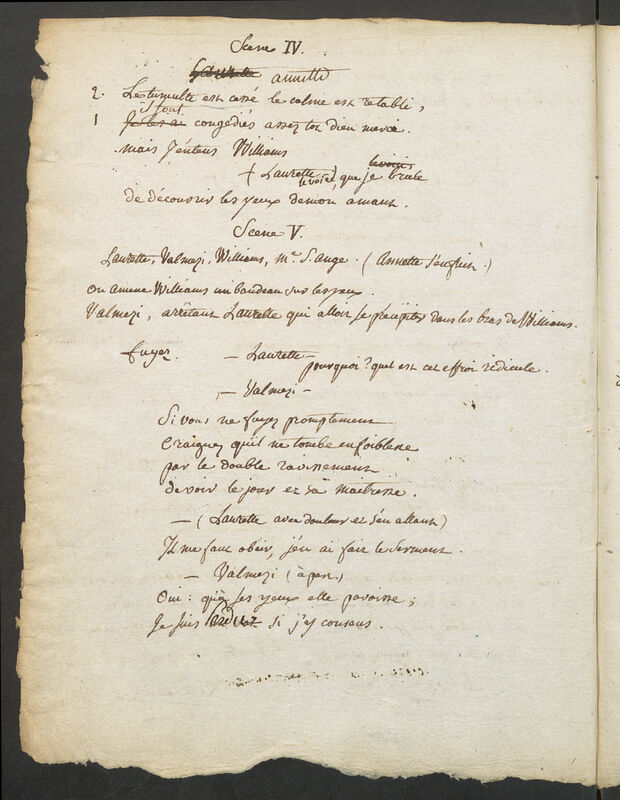 Scene IV.
Laurette annette
2. Le tumulte est cessé le calme est retabli,
ils sont
1 Je les ai congediés assez tot dieu merci.
mais J'entens Williams
levoici
+ Laurette
levoici, que je brule
de découvrir les yeux demon amant.
Scene V.
Laurette, Valmezi, Williams, Mr. S. ange. (Annette s'enfuit.)
on amene Williams un bandeau sur les yeux.
Valmezi, arrêtant Laurette qui alloit se précipiter dans les bras de Williams.
fuyez. — Laurette —
pourquoi? quel est cet effroi ridicule.
— Valmezi —
Si vous ne fuyez promptement
Craignez qu'il ne tombe en foiblesse
par le double ravissement
devoir le jour et sa maitresse.
— (Laurette avec douleur et s'en allant)
Il me faut obéir, j'en ai fait le serment.
— Valmezi (à part)
Oui: qu'à ses yeux elle paroisse;
Je suis perdu si j'y consens.